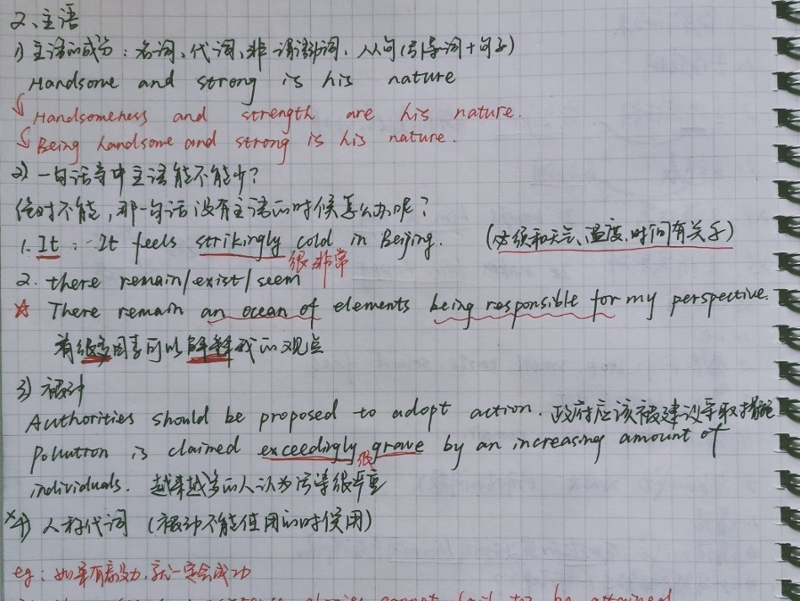 2、主语
1) 主语的成分：名词、代词、非谓语动词、从句(引导词+句子)
Handsome and strong is his nature
Handsomeness and strength are his nature.
Being handsome and strong is his nature.
2) 一句话当中主语能不能少？
绝对不能，那一句话没有主语的时候怎么办呢？
1. It : It feels strikingly cold in Beijing. (必须和天气、温度、时间有关系)
很 非常
2. there remain/exist/seem
☆ There remain an ocean of elements being responsible for my perspective.
有很多因素可以解释我的观点
3) 被动
Authorities should be proposed to adopt action. 政府应该被建议采取措施
Pollution is claimed exceedingly grave by an increasing amount of
很
individuals. 越来越多的人认为污染很严重
4) 人称代词 (被动不能使用的时候用)
eg: 如果有毅力，就一定会成功
cannot fail to be attained